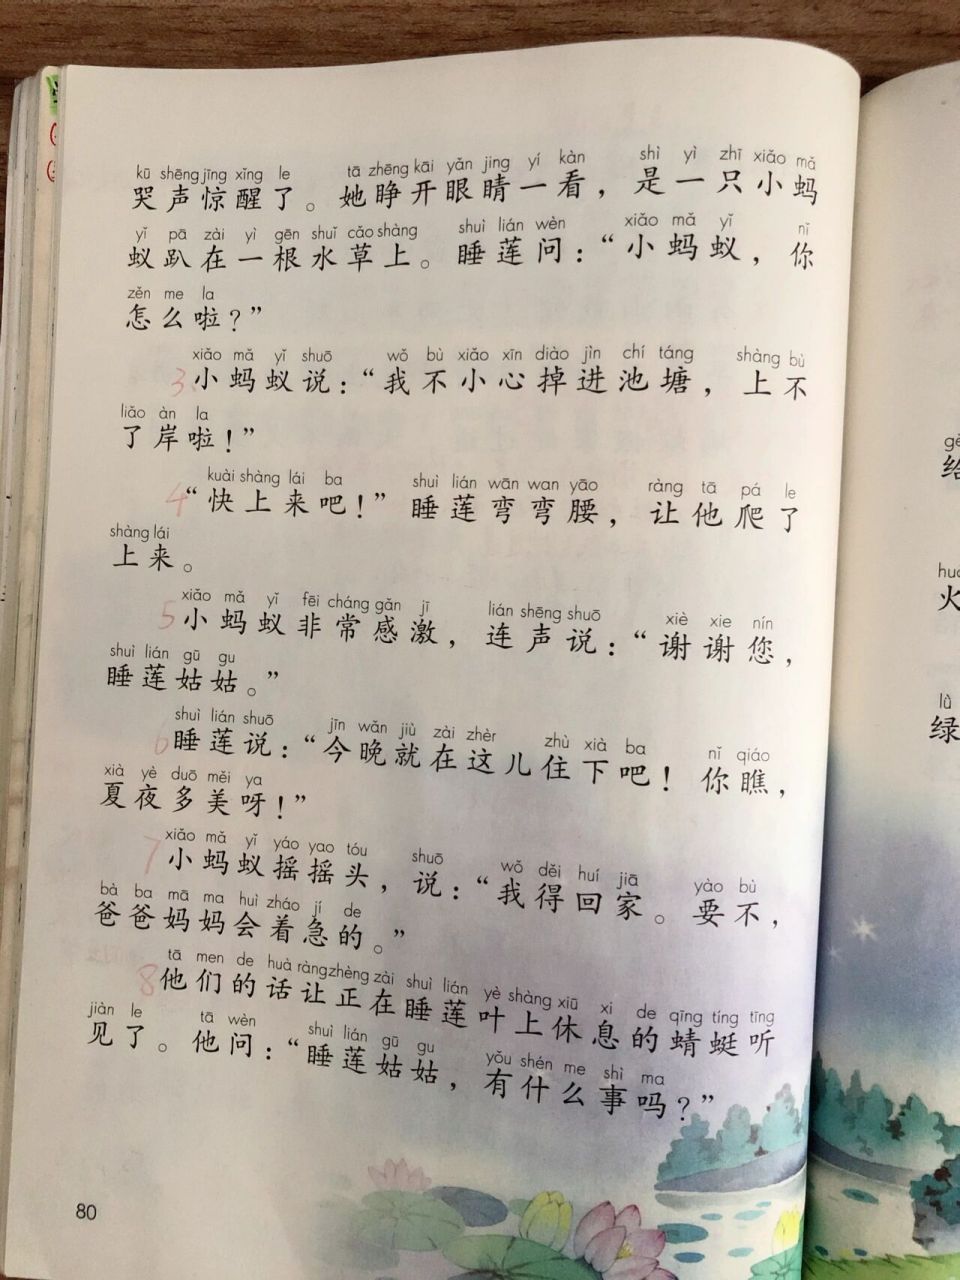 kū shēng jīng xǐng le tā zhēng kāi yǎn jing yí kàn shì yì zhī xiǎo mǎ
哭声惊醒了。她睁开眼睛一看，是一只小蚂
yǐ pā zài yì gēn shuǐ cǎo shàng shuì lián wèn xiǎo mǎ yǐ nǐ
蚁趴在一根水草上。睡莲问：“小蚂蚁，你
zěn me la
怎么啦？”
xiǎo mǎ yǐ shuō wǒ bù xiǎo xīn diào jìn chí táng shàng bù
3 小蚂蚁说：“我不小心掉进池塘，上不
liǎo àn la
了岸啦！”
kuài shàng lái ba shuì lián wān wan yāo ràng tā pá le
4 “快上来吧！”睡莲弯弯腰，让他爬了
shàng lái
上来。
xiǎo mǎ yǐ fēi cháng gǎn jī lián shēng shuō xiè xie nín
5 小蚂蚁非常感激，连声说：“谢谢您，
shuì lián gū gu
睡莲姑姑。”
shuì lián shuō jīn wǎn jiù zài zhèr zhù xià ba nǐ qiáo
6 睡莲说：“今晚就在这儿住下吧！你瞧，
xià yè duō měi ya
夏夜多美呀！”
xiǎo mǎ yǐ yáo yao tóu shuō wǒ děi huí jiā yào bù
7 小蚂蚁摇摇头，说：“我得回家。要不，
bà ba mā ma huì zháo jí de
爸爸妈妈会着急的。”
tā men de huà ràng zhèng zài shuì lián yè shàng xiū xi de qīng tíng tīng
8 他们的话让正在睡莲叶上休息的蜻蜓听
jiàn le tā wèn shuì lián gū gu yǒu shén me shì ma
见了。他问：“睡莲姑姑，有什么事吗？”
80
gě
给
huǒ
火
lǜ
绿